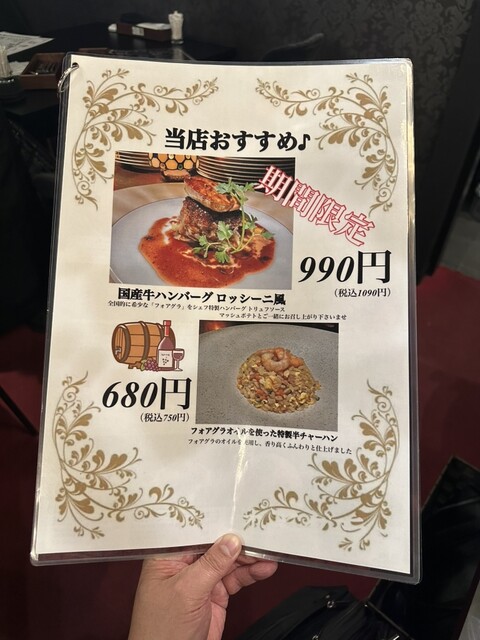 当店おすすめ♪
期間限定
990円
(税込1090円)
国産牛ハンバーグ ロッシーニ風
全国的に希少な「フォアグラ」をシェフ特製ハンバーグ トリュフソース
マッシュポテトとご一緒にお召し上がり下さいませ
680円
(税込750円)
フォアグラオイルを使った特製半チャーハン
フォアグラのオイルを使用し、香り高くふんわりと仕上げました